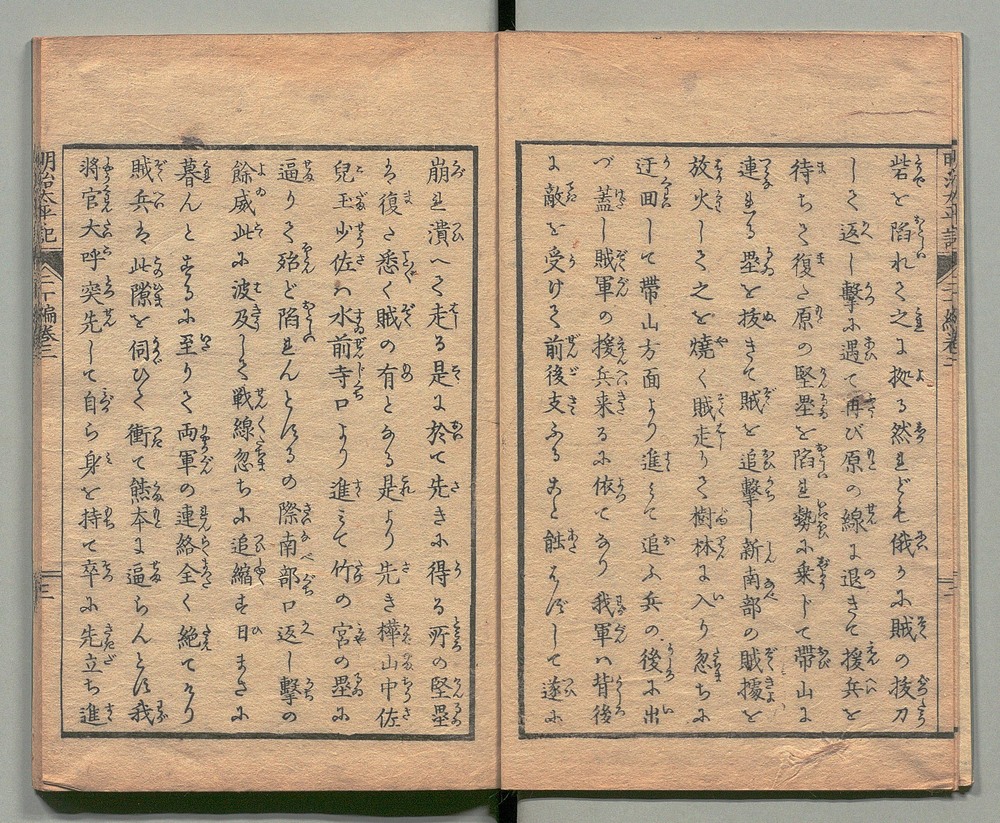 砦を陥れて之に拠る然れども俄かに賊の抜刀
して返し撃に遇て再び原の線に退きて援兵を
待ちて復た原の堅塁を陥れ勢に乗じて帯山に
連れる塁を抜きて賊を追撃し新南部の賊據を
放火して之を焼く賊走りて樹林に入り忽ちに
迂回して帯山方面より進みて追ふ兵の後に出
づ蓋し賊軍の援兵来るに依てなり我軍ハ背後
に敵を受けて前後支ふること能はずして遂に
崩れ潰へて走る是に於て先きに得る所の堅塁
も復た悉く賊の有となる是より先き樺山中佐
児玉少佐ハ水前寺口より進みて竹の宮の塁に
逼りて殆ど陥れんとするの際南部口返し撃の
餘威此に波及して戦線忽ちに追縮す日まさに
暮んとするに至りて両軍の連絡全く絶てり
賊兵も此隙を伺ひて衝て熊本に逼らんとす我
将官大呼突先して自ら身を持て卒に先立ち進
明治太平記
二十編巻三
三